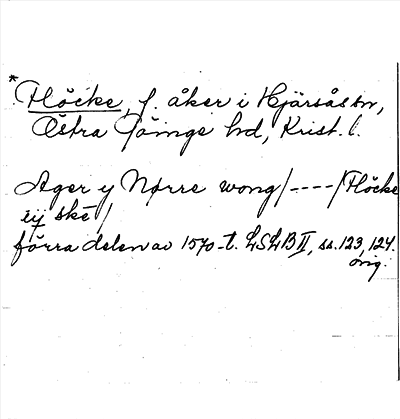 *Flöcke, f. åker i Hjärsås sn,
Östra Göinge hd, Krist. l.
Ager y Nørre wong/----/Flöcke
iij skē/
förra delen av 1570-t. LSLB II, ss. 123, 124.
orig.